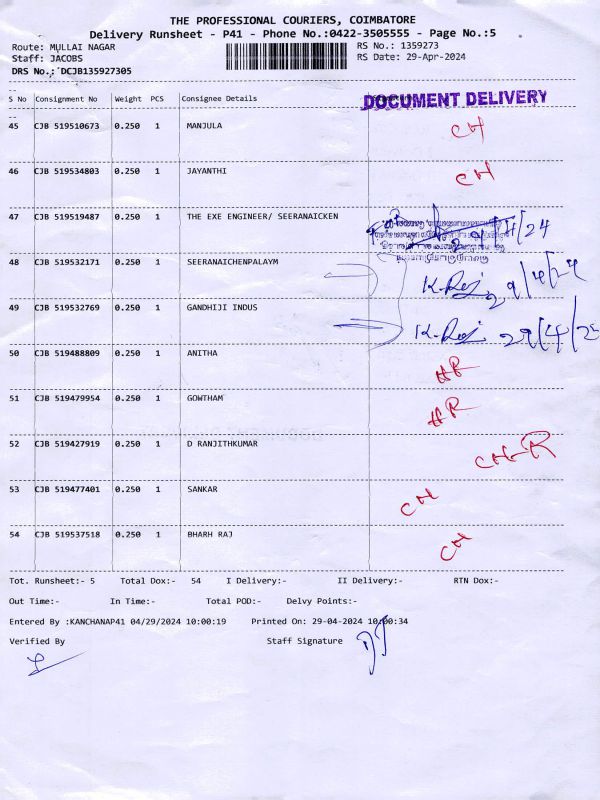 THE PROFESSIONAL COURIERS, COIMBATORE
Delivery Runsheet - P41 - Phone No.:0422-3505555 - Page No.:5
Route: MULLAI NAGAR
RS No.: 1359273
Staff: JACOBS
RS Date: 29-Apr-2024
DRS No.: DCJB135927305
S No Consignment No Weight PCS Consignee Details
DOCUMENT DELIVERY
45 CJB 519510673 0.250 1 MANJULA CH
46 CJB 519534803 0.250 1 JAYANTHI CH
47 CJB 519519487 0.250 1 THE EXE ENGINEER/ SEERANAICKEN
48 CJB 519532171 0.250 1 SEERANAICHENPALAYM K.Raj 29/4/24
49 CJB 519532769 0.250 1 GANDHIJI INDUS K.Raj 29/4/24
50 CJB 519488809 0.250 1 ANITHA HR
51 CJB 519479954 0.250 1 GOWTHAM HR
52 CJB 519427919 0.250 1 D RANJITHKUMAR CH-R
53 CJB 519477401 0.250 1 SANKAR CH
54 CJB 519537518 0.250 1 BHARH RAJ CH
Tot. Runsheet:- 5 Total Dox:- 54 I Delivery:- II Delivery:- RTN Dox:-
Out Time:- In Time:- Total POD:- Delvy Points:-
Entered By :KANCHANAP41 04/29/2024 10:00:19 Printed On: 29-04-2024 10:00:34
Verified By Staff Signature